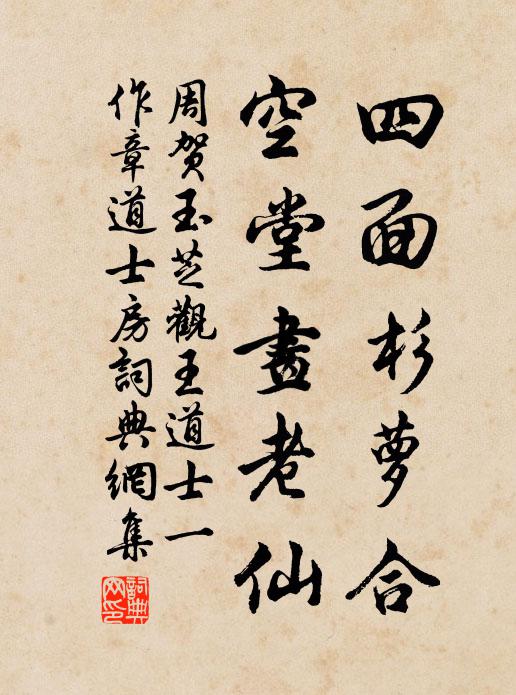 四面杉萝合
空堂畫老仙
周贺玉芝觀王道士一
作章道士房詞典網集
詞典
网印